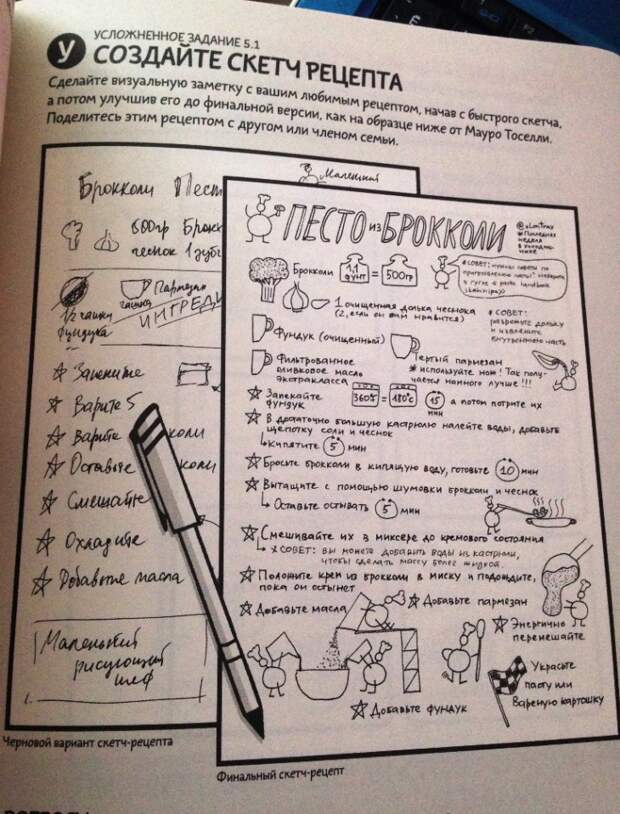 У
УСЛОЖНЕННОЕ ЗАДАНИЕ 5.1
СОЗДАЙТЕ СКЕТЧ РЕЦЕПТА
Сделайте визуальную заметку с вашим любимым рецептом, начав с быстрого скетча,
а потом улучшив его до финальной версии, как на образце ниже от Мауро Тоселли.
Поделитесь этим рецептом с другом или членом семьи.
Брокколи Пест
Маленький
600гр Брокк
чеснок 1 зуб
Пармезан
чашка
1/2 чашки
фундука
ИНГРЕДИ
Запеките
Варите 5
Варите коли
Оставьте коли
Смешайте
Охладите
Добавьте масла
Маленький
рисующий
шеф
Черновой вариант скетч-рецепта
ПЕСТО из БРОККОЛИ
Последняя
неделя
Брокколи 1,1 фунт = 500гр
СОВЕТ: нужны советы по
приготовлению пасты?
1 очищенная долька чеснока
(2, если он вам нравится)
СОВЕТ:
разрежьте дольку
и извлеките
внутреннюю часть
Фундук (очищенный)
Тертый пармезан
используйте нож! Так полу-
чается намного лучше!!!
Фильтрованное
оливковое масло
экстракласса
Запекайте
фундук 360°F = 180°C 15 мин а потом потрите их
В достаточно большую кастрюлю налейте воды, добавьте
щепотку соли и чеснок
Кипятите 5 мин
Бросьте брокколи в кипящую воду, готовьте 10 мин
Вытащите с помощью шумовки брокколи и чеснок
Оставьте остывать 5 мин
Смешивайте их в миксере до кремового состояния
СОВЕТ: вы можете добавить воды из кастрюли,
чтобы сделать массу более жидкой.
Положите крем из брокколи в миску и подождите,
пока он остынет
Добавьте масла
Добавьте пармезан
Энергично
перемешайте
Добавьте фундук
Украсьте
пасту или
Вареную картошку
Финальный скетч-рецепт